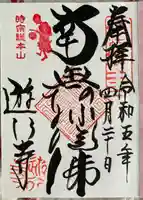 奉拝
令和五年
四月二十日
南無阿弥陀佛
時宗総本山
遊行寺